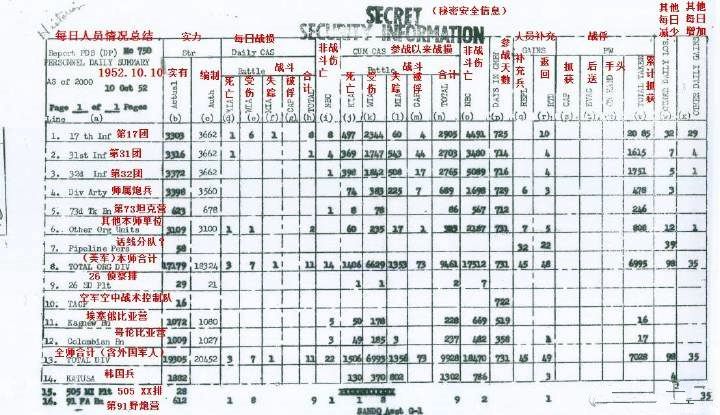 SECRET (秘密安全信息)
SECURITY INFORMATION
每日人员情况总结 实力 每日战损 非战斗伤亡 参战以来战损 非战斗伤亡 参战天数 人员补充 战俘 其他每日减少 其他每日增加
Report PDS (DP) No 750 Str Daily CAS CUM CAS GAINS PW
PERSONNEL DAILY SUMMARY Battle 战斗 Battle 战斗
1952.10.10 实有 编制 死亡 受伤 失踪 被俘 合计 死亡 受伤 失踪 被俘 合计 补充兵 返回 抓获 后送 手头 累计抓获
AS of 2000 10 Oct 52 Actual Auth
Page 1 of 1 Pages
Line (a) (b)
1. 17 th Inf 第17团 3303 3662 1 6 1 8 8 497 2344 60 4 2905 4491 725 10 20 85 32 29
2. 31st Inf 第31团 3316 3662 1 1 4 369 1747 543 44 2703 3480 714 4 1615 7 4
3. 32d Inf 第32团 3372 3662 1 398 1842 508 17 2765 5089 716 4 1751 5 1
4. Div Arty 师属炮兵 3398 3560 74 383 225 7 689 1698 729 6 3 478 3
5. 73d Tk Bn 第73坦克营 623 678 1 8 78 86 567 712 246
其他本师单位
6. Other Org Units 3109 3100 1 1 2 60 235 17 1 2187 731 7 5 808 12 1
7. Pipeline Pers 话线分队? 58 32 22 39
(美军)本师合计
8. TOTAL ORG DIV 17179 18324 3 7 1 11 14 1406 6629 1353 73 9461 17512 731 45 48 6995 98 35
26 侦察排
9. 26 SD Plt 29 21 1 1 2 7
空军空中战术控制队
10. TACP 16 722
埃塞俄比亚营
11. Kagnew Bn 1072 1080 5 50 178 228 669 519 16
哥伦比亚营
12. Colombian Bn 1009 1027 3 49 185 3 237 482 358 1 17
全师合计(含外国军人)
13. TOTAL DIV 19305 20452 3 7 1 11 22 1506 6993 1356 73 9928 18470 731 45 49 7028 98 35
14. KATUSA 韩国兵 1882 130 370 802 1302 786 3 4
15. 505 MI Plt 505 XX排 28
16. 91 FA Bn 第91野炮营 612 1 8 9 1 8 9 1 2 35
SANDQ Asst G-1